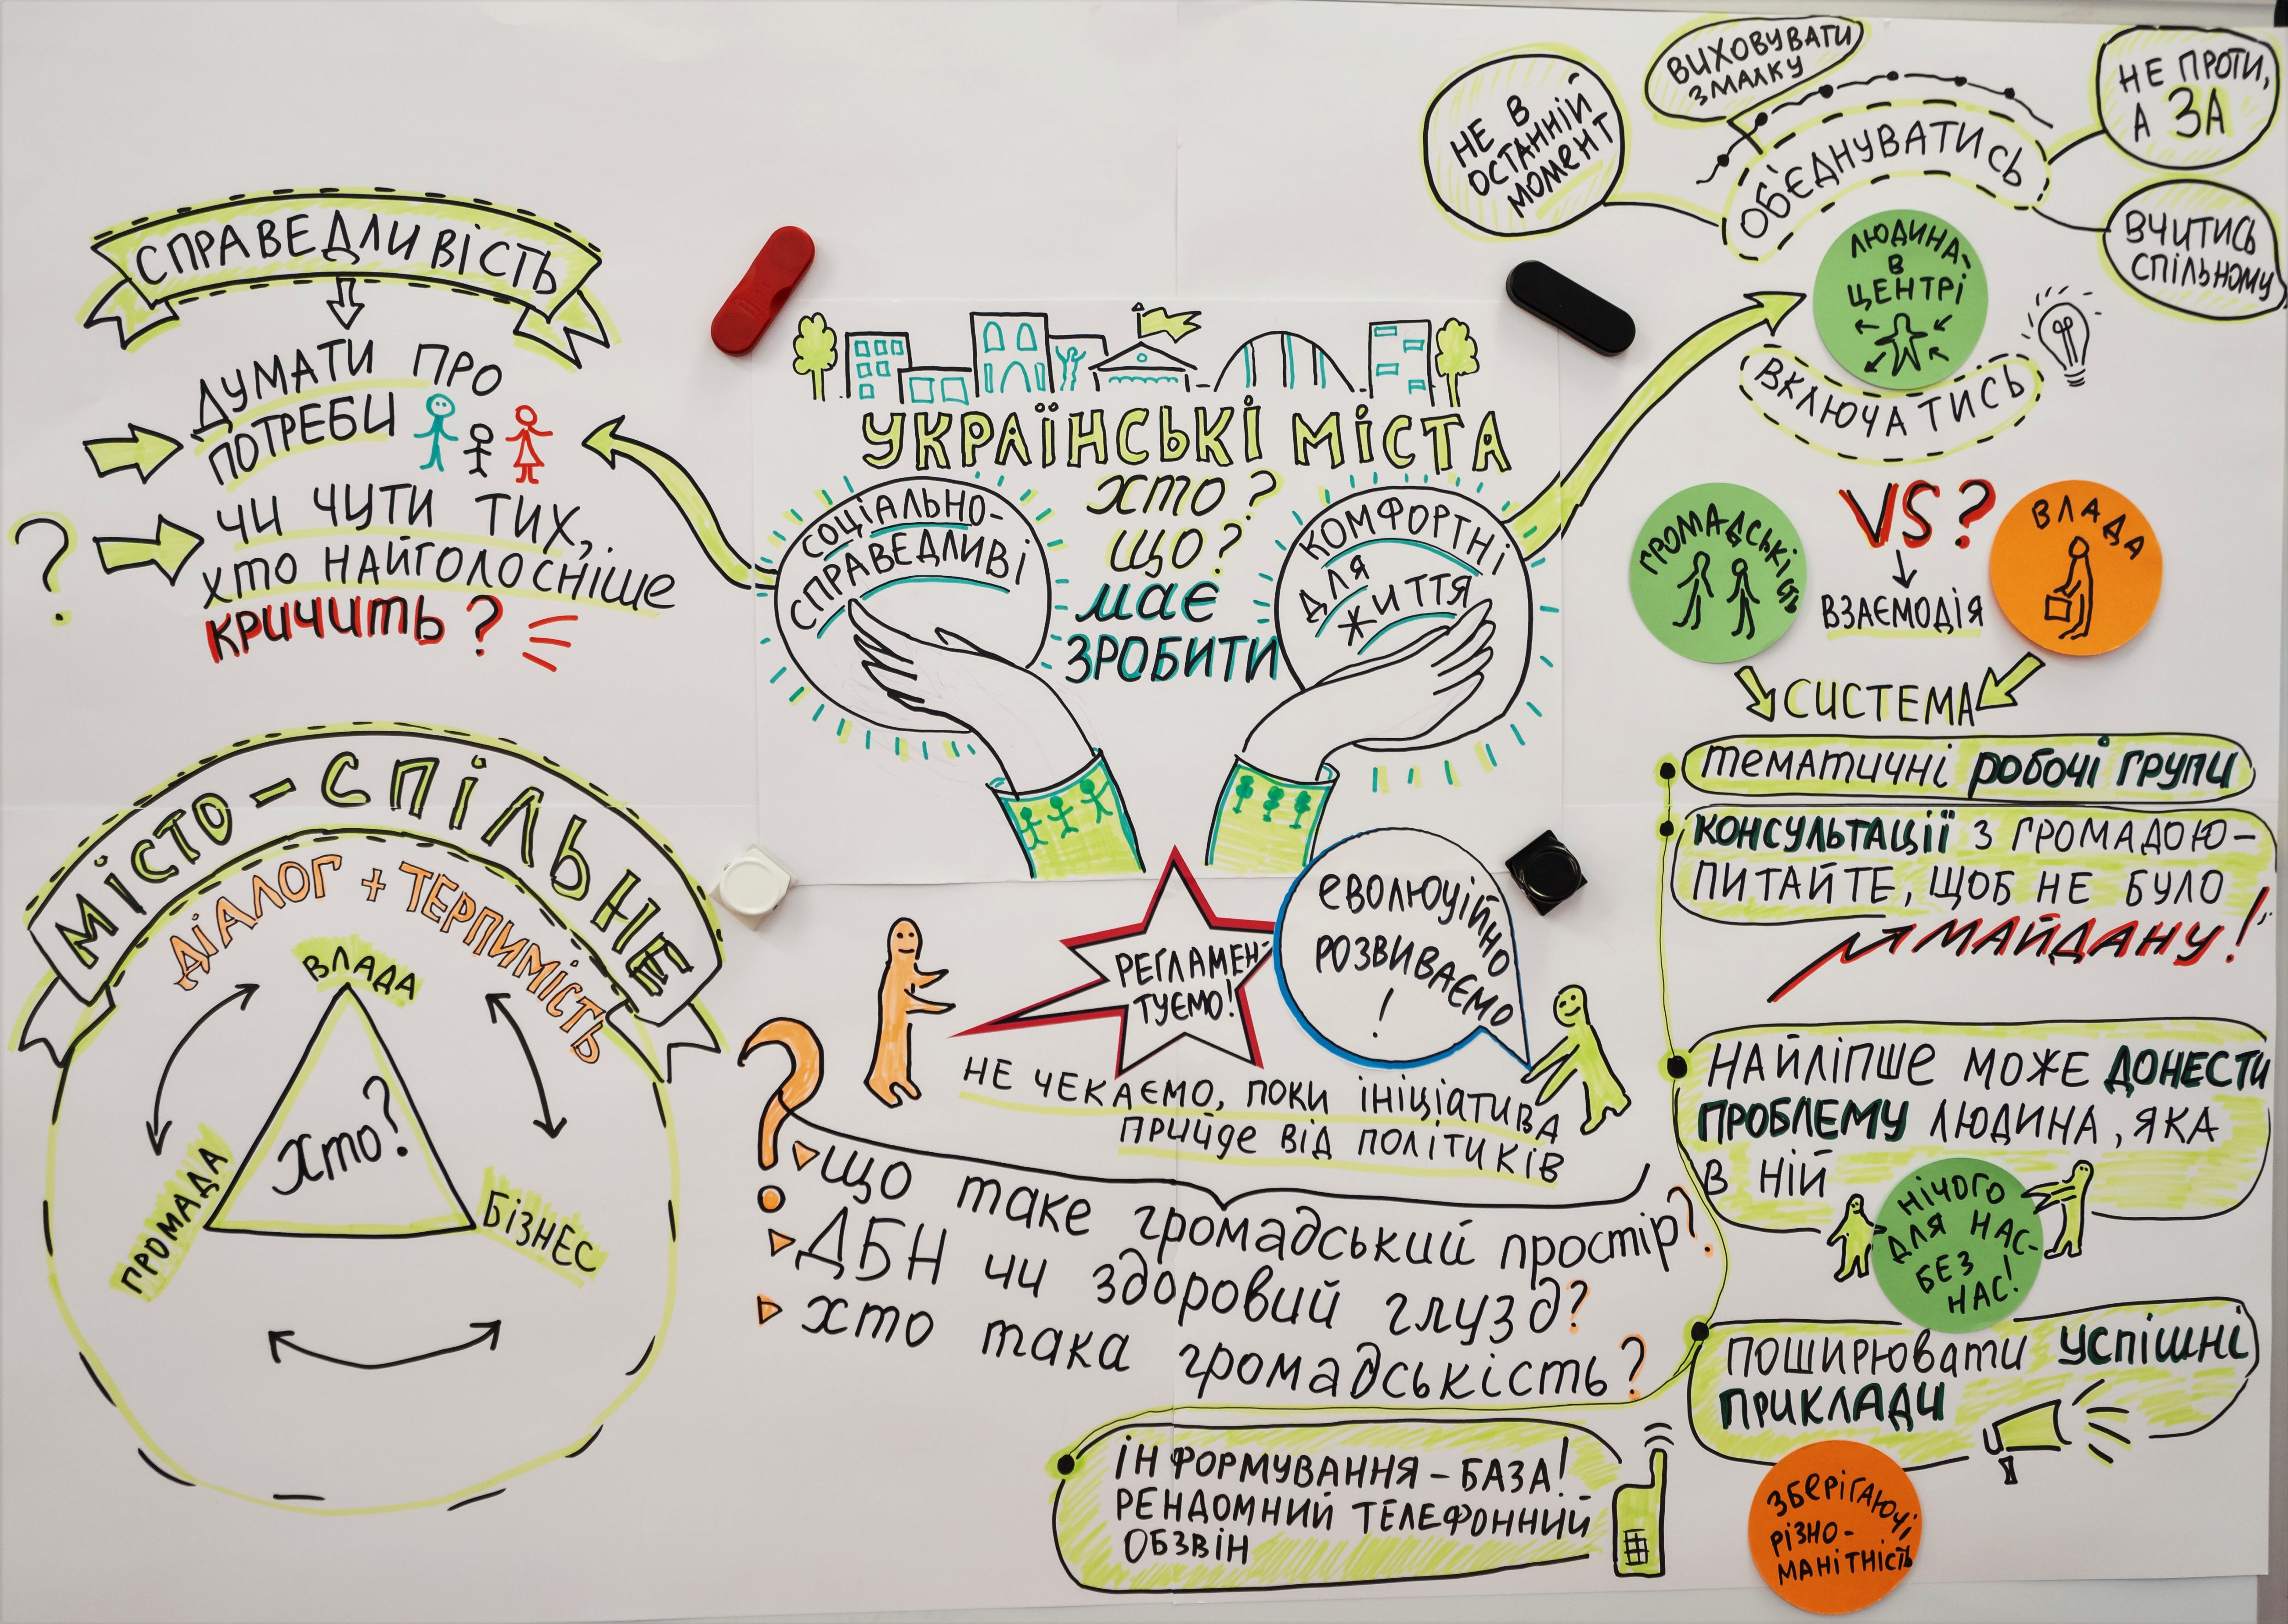 СПРАВЕДЛИВІСТЬ
ДУМАТИ ПРО
ПОТРЕБИ
? ЧИ ЧУТИ ТИХ,
ХТО НАЙГОЛОСНІШЕ
КРИЧИТЬ?
МІСТО – СПІЛЬНЕ
ДІАЛОГ + ТЕРПИМІСТЬ
ВЛАДА
ХТО?
ГРОМАДА
БІЗНЕС
УКРАЇНСЬКІ МІСТА
ХТО?
ЩО?
має
ЗРОБИТИ
СОЦІАЛЬНО-
СПРАВЕДЛИВІ
КОМФОРТНІ
ДЛЯ
ЖИТТЯ
РЕГЛАМЕН-
ТУЄМО!
ЕВОЛЮЦІЙНО
РОЗВИВАЄМО
!
НЕ ЧЕКАЄМО, ПОКИ ІНІЦІАТИВА
ПРИЙДЕ ВІД ПОЛІТИКІВ
?
що таке громадський простір?
ДБН чи здоровий глузд?
хто така громадськість?
ІНФОРМУВАННЯ – БАЗА!
РЕНДОМНИЙ ТЕЛЕФОННИЙ
ОБЗВІН
НЕ В
ОСТАННІЙ
МОМЕНТ
ВИХОВУВАТИ
ЗМАЛКУ
НЕ ПРОТИ,
А ЗА
ВЧИТИСЬ
СПІЛЬНОМУ
ОБ'ЄДНУВАТИСЬ
ЛЮДИНА
В
ЦЕНТРІ
ВКЛЮЧАТИСЬ
ГРОМАДСЬКІСТЬ
VS?
ВЛАДА
ВЗАЄМОДІЯ
СИСТЕМА
ТЕМАТИЧНІ РОБОЧІ ГРУПИ
КОНСУЛЬТАЦІЇ З ГРОМАДОЮ –
ПИТАЙТЕ, ЩОБ НЕ БУЛО
МАЙДАНУ!
НАЙЛІПШЕ МОЖЕ ДОНЕСТИ
ПРОБЛЕМУ ЛЮДИНА, ЯКА
В НІЙ
НІЧОГО
ДЛЯ НАС-
БЕЗ
НАС!
ПОШИРЮВАТИ УСПІШНІ
ПРИКЛАДИ
ЗБЕРІГАЮЧИ
РІЗНО-
МАНІТНІСТЬ